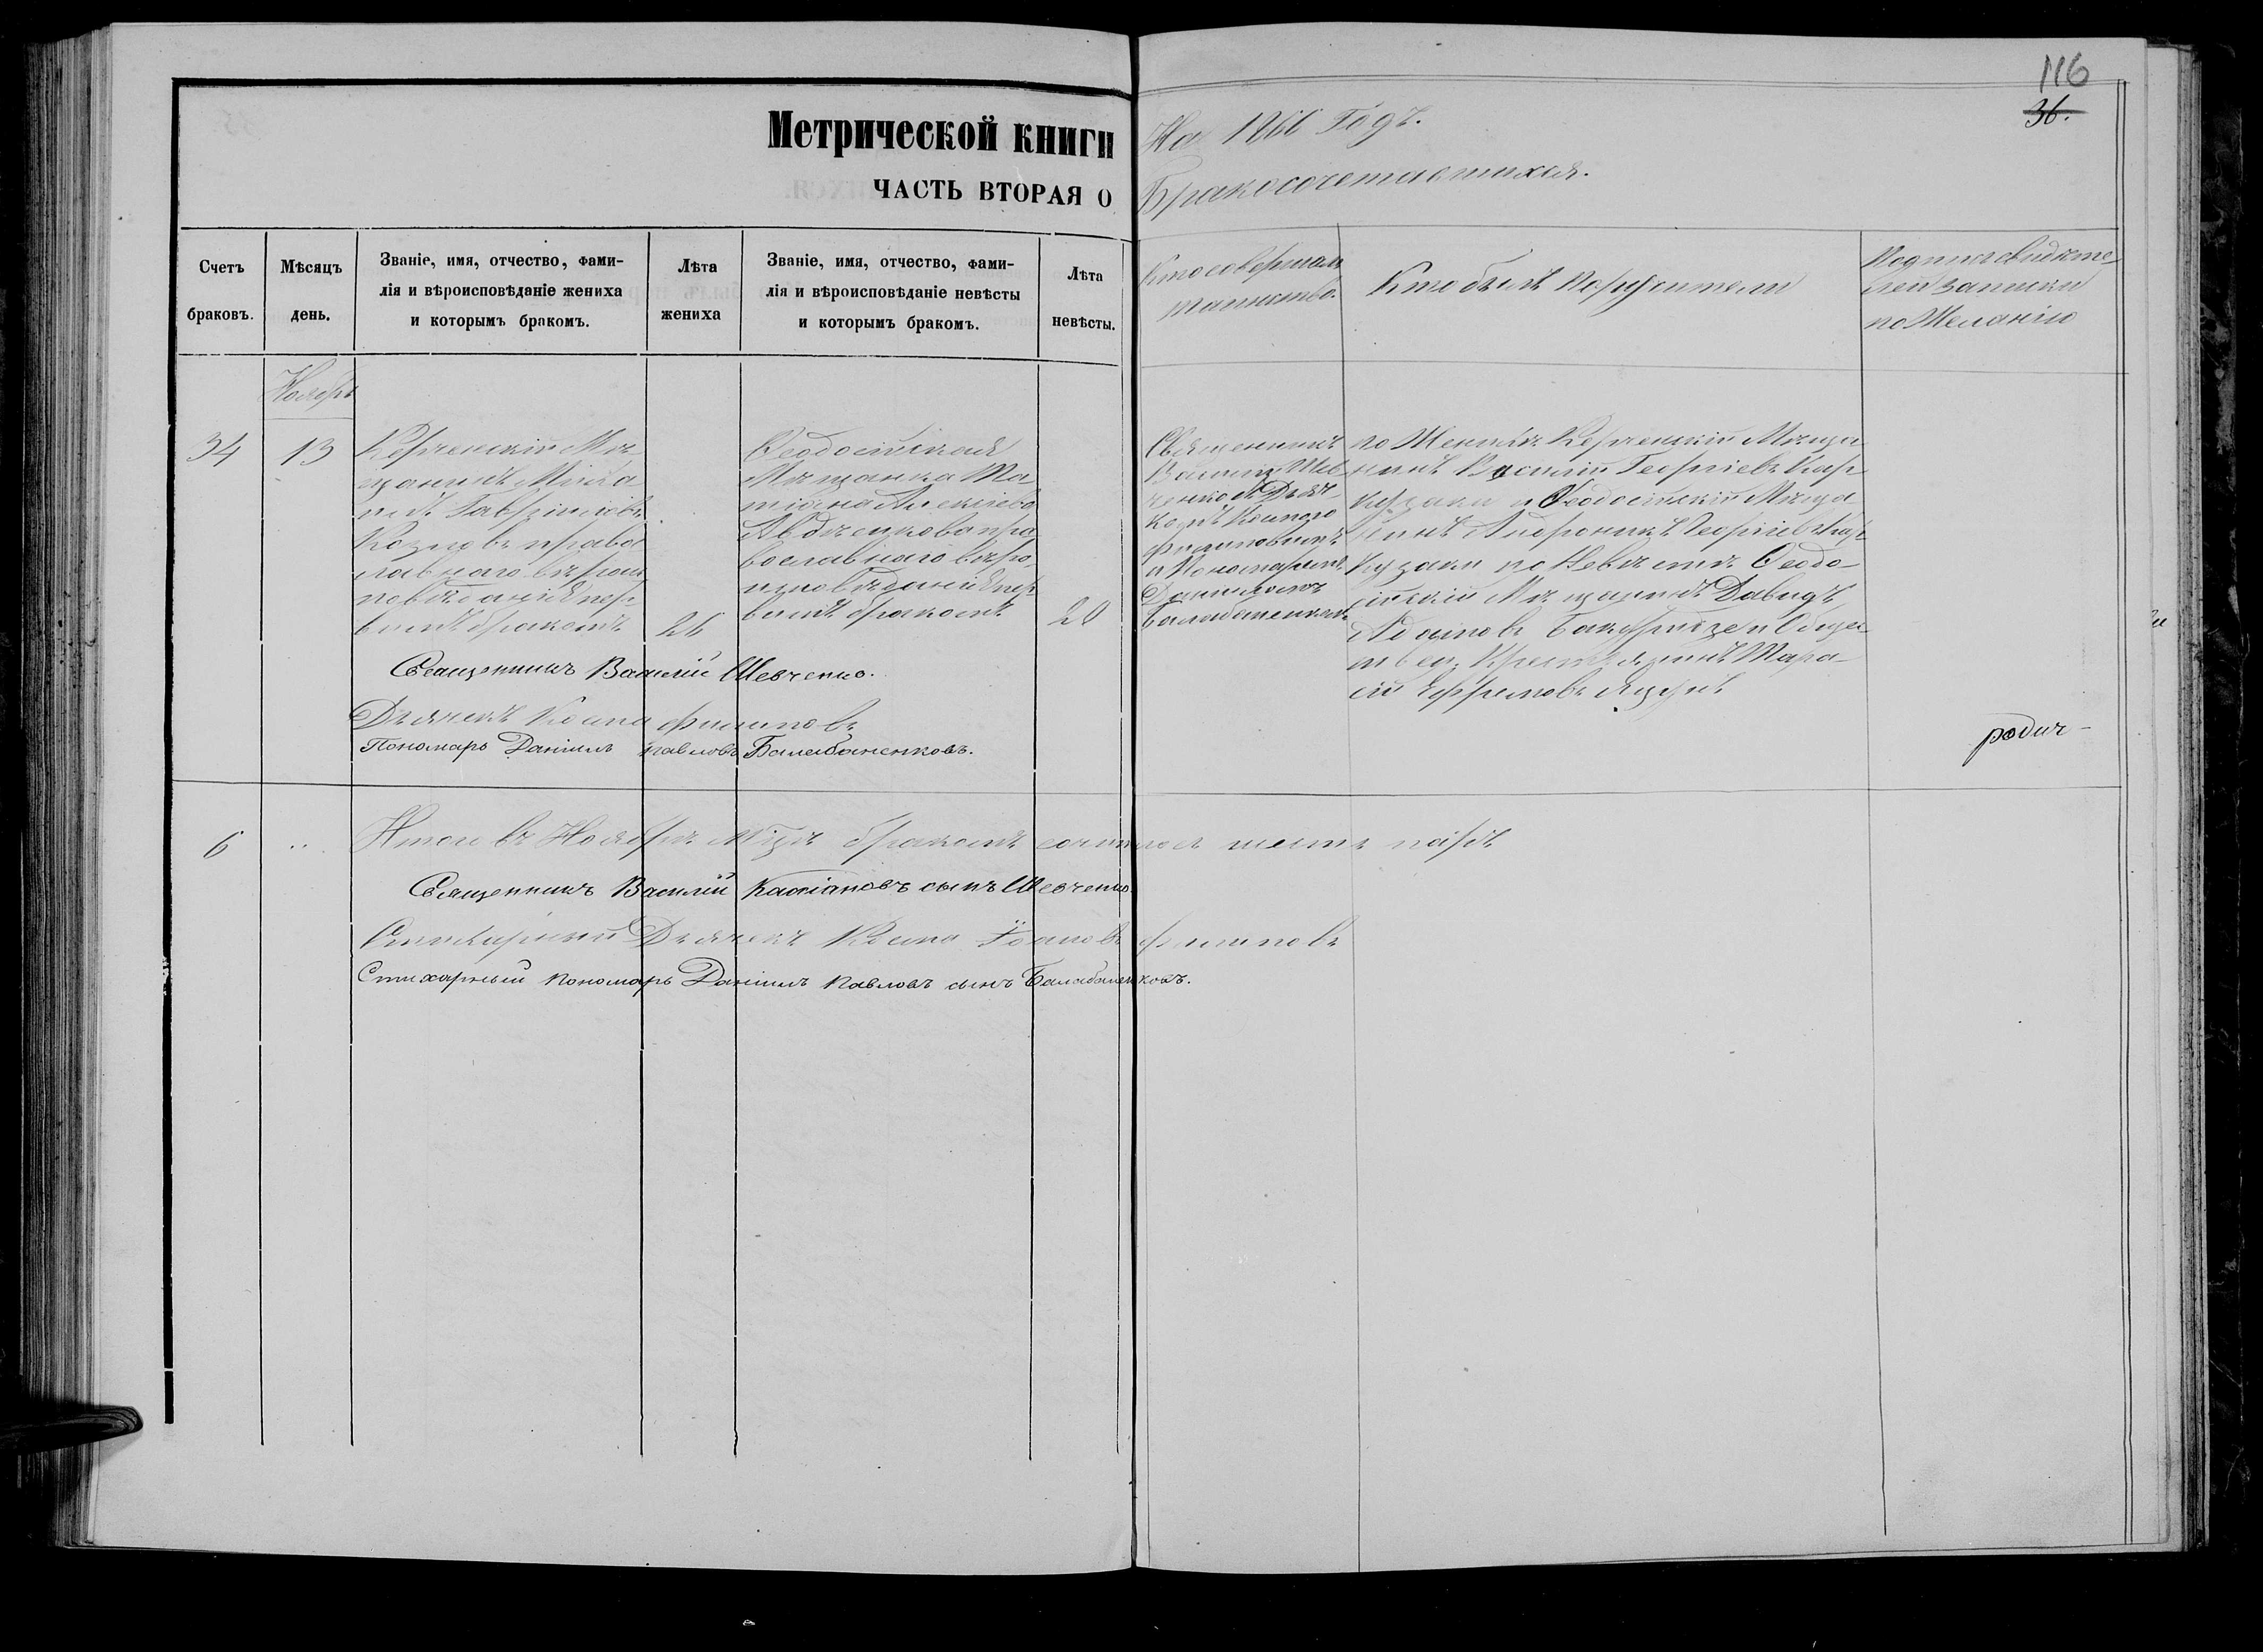 116
36.
Метрической книги На 1866 Годъ.
ЧАСТЬ ВТОРАЯ О Бракосочетавшихся.
Счетъ браковъ.
Мѣсяцъ день.
Званіе, имя, отчество, фами-
лія и вѣроисповѣданіе жениха
и которымъ бракомъ.
Лѣта
жениха
Званіе, имя, отчество, фами-
лія и вѣроисповѣданіе невѣсты
и которымъ бракомъ.
Лѣта
невѣсты.
Кто совершалъ
таинство.
Кто были поручители
Подписи свидѣте-
лей записки
по Желанію
Ноябрь
34
13
Керченскій Мѣ-
щанинъ Миха
илъ Гавриіловъ
Козловъ право
славнаго вѣроис
повѣданія пер-
вымъ бракомъ
26
Ѳеодосійская
Мѣщанка Та
тіана Алексіева
Авдѣенкова пра
вославнаго вѣро
исповѣданія пер
вымъ бракомъ
20
Священникъ
Василій Шев
ченко съ Дьяч-
комъ Космою
Филиповымъ
и Пономаремъ
Даниломъ
Балабаненкомъ
по Женихѣ Керченскій Мѣща
нинъ Василій Георгіевъ
и Ѳеодосійскій Мѣща
нинъ Андроникъ Георгіевъ
по Невѣстѣ Ѳеодо-
сійскій Мѣщанинъ Давидъ
Адамовъ
Крестьянинъ Тара-
сій Ефремовъ
Священникъ Василій Шевченко.
Дьячекъ Косма Филиповъ
Пономарь Даніилъ Павловъ Балабаненковъ.
родич-
6
Итого въ Ноябрѣ М-цѣ бракомъ сочталось шесть паръ
Священникъ Василій Касіановъ сынъ Шевченко.
Стихарный Дьячекъ Косма Іоановъ Филиповъ
Стихарный пономарь Даніилъ Павловъ сынъ Балабаненковъ.